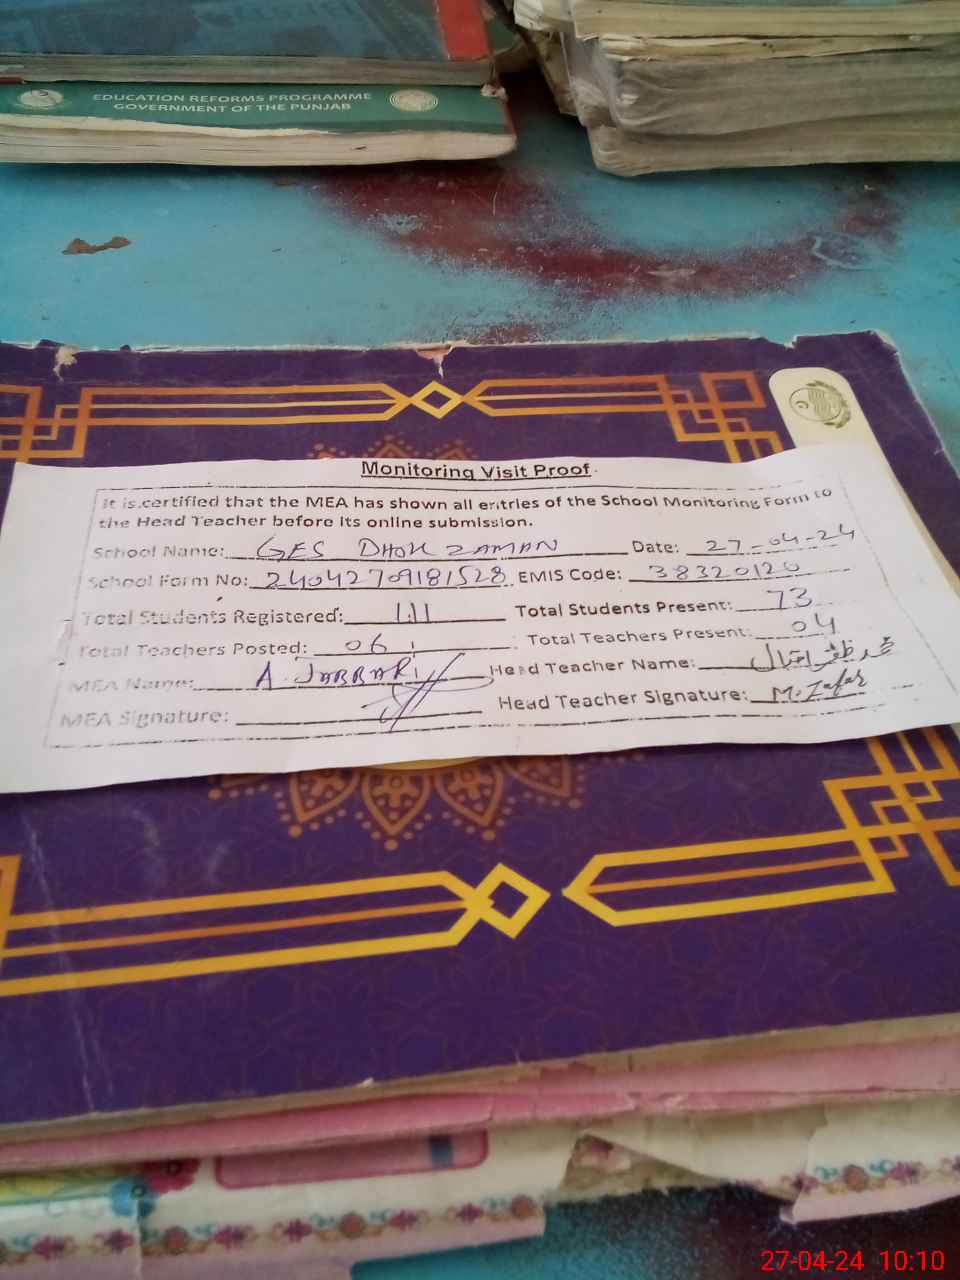 EDUCATION REFORMS PROGRAMME
GOVERNMENT OF THE PUNJAB
Monitoring Visit Proof
It is certified that the MEA has shown all entries of the School Monitoring Form to
the Head Teacher before its online submission.
School Name: GES DHOK ZAMAN Date: 27-04-24
School Form No: 24042709181528 EMIS Code: 38320120
Total Students Registered: 111 Total Students Present: 73
Total Teachers Posted: 06 Total Teachers Present: 04
MEA Name: A. JABBAR Head Teacher Name: محمد ظفر اقبال
MEA Signature: Head Teacher Signature: M. Zafar
27-04-24 10:10